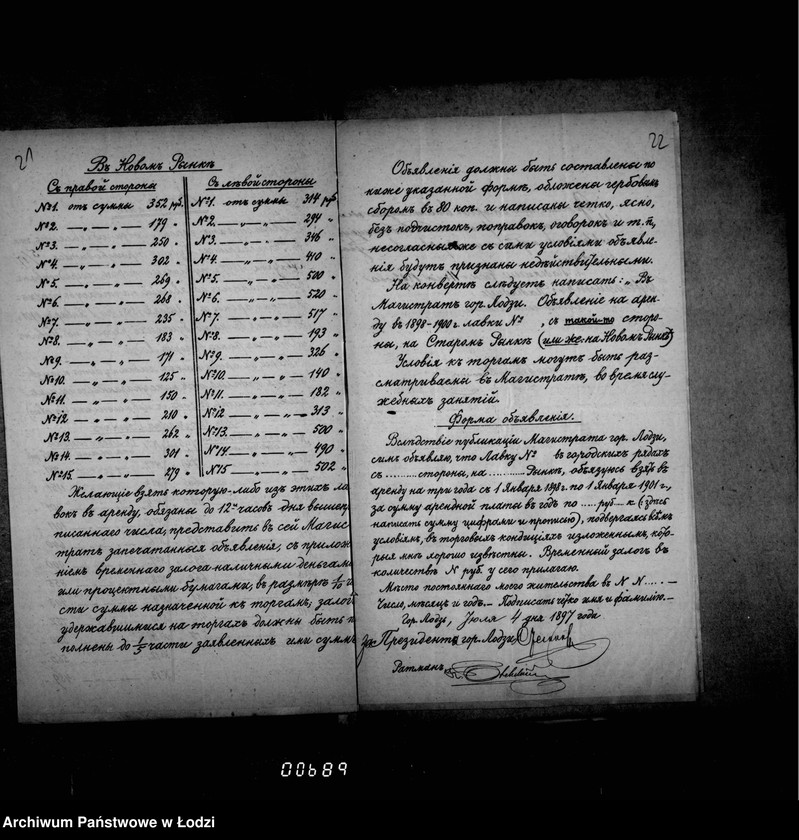 21
Въ Новомъ Рынкѣ
Съ правой стороны
№1. отъ суммы 352 руб.
№2. — „ — „ — 179 „
№3. — „ — „ — 250 „
№4. — „ — „ — 302 „
№5. — „ — „ — 269 „
№6. — „ — „ — 268 „
№7. — „ — „ — 235 „
№8. — „ — „ — 183 „
№9. — „ — „ — 171 „
№10. — „ — „ — 125 „
№11. — „ — „ — 150 „
№12 — „ — „ — 210 „
№13. — „ — „ — 262 „
№14. — „ — „ — 301 „
№15. — „ — „ — 279 „
Съ лѣвой стороны
№1. отъ суммы 314 руб.
№2. — „ — „ — 294 „
№3. — „ — „ — 346 „
№4. — „ — „ — 410 „
№5. — „ — „ — 500 „
№6. — „ — „ — 520 „
№7. — „ — „ — 517 „
№8. — „ — „ — 193 „
№9. — „ — „ — 326 „
№10. — „ — „ — 140 „
№11. — „ — „ — 182 „
№12 — „ — „ — 313 „
№13. — „ — „ — 500 „
№14. — „ — „ — 490 „
№15 — „ — „ — 502 „
Желающіе взять которую-либо изъ этихъ ла
вокъ въ аренду, обязаны до 12ти часовъ дня вышепр
писаннаго числа, представить въ сей Магис
тратъ запечатанныя объявленія, съ прилож
ніемъ временнаго залога наличными деньгами
или процентными бумагами, въ размѣрѣ 1/10 ч
сти суммы назначенной къ торгамъ; залоги
удержавшимися на торгахъ должны быть п
полнены до 1/5 части заявленныхъ ими суммъ
22
Объявленія должны быть составлены по
ниже указанной формѣ, обложены гербовымъ
сборомъ въ 80 коп. и написаны четко, ясно,
безъ подчистокъ, поправокъ, оговорокъ и т. п,
несогласныя же съ сими условіями объявл-
нія будутъ признаны недѣйствительными.
На конвертѣ слѣдуетъ написать: „Въ
Магистратъ гор. Лодзи. Объявленіе на арен-
ду въ 1898-1900 г лавки № , съ такой-то сторо-
ны, на Старомъ Рынкѣ (или же: на Новомъ Рынкѣ)
Условія къ торгамъ могутъ быть раз-
сматриваемы въ Магистратѣ, во время слу-
жебныхъ занятій.
Форма объявленія.
Вслѣдствіе публикаціи Магистрата гор. Лодзи,
симъ объявляю, что Лавку № въ городскихъ рядахъ
съ ........ стороны, на .......... Рынкѣ, обязуюсь взять въ
аренду на три года съ 1 Января 1898 г. по 1 Января 1901 г.,
за сумму арендной платы въ годъ по ..... руб — к (здѣсь
написать сумму цифрами и прописью), подвергаясь всѣмъ
условіямъ, въ торговыхъ кондиціяхъ изложеннымъ, кото-
рыя мнѣ хорошо извѣстны. Временный залогъ въ
количествѣ N руб. у сего прилагаю.
Мѣсто постояннаго моего жительства въ N N..... —
Число, мѣсяцъ и годъ. — Подписать четко имя и фамилію. —
Гор. Лодзь, Іюля 4 дня 1897 года
За Президента гор. Лодзи,
Ратманъ
00689
Archiwum Państwowe w Łodzi